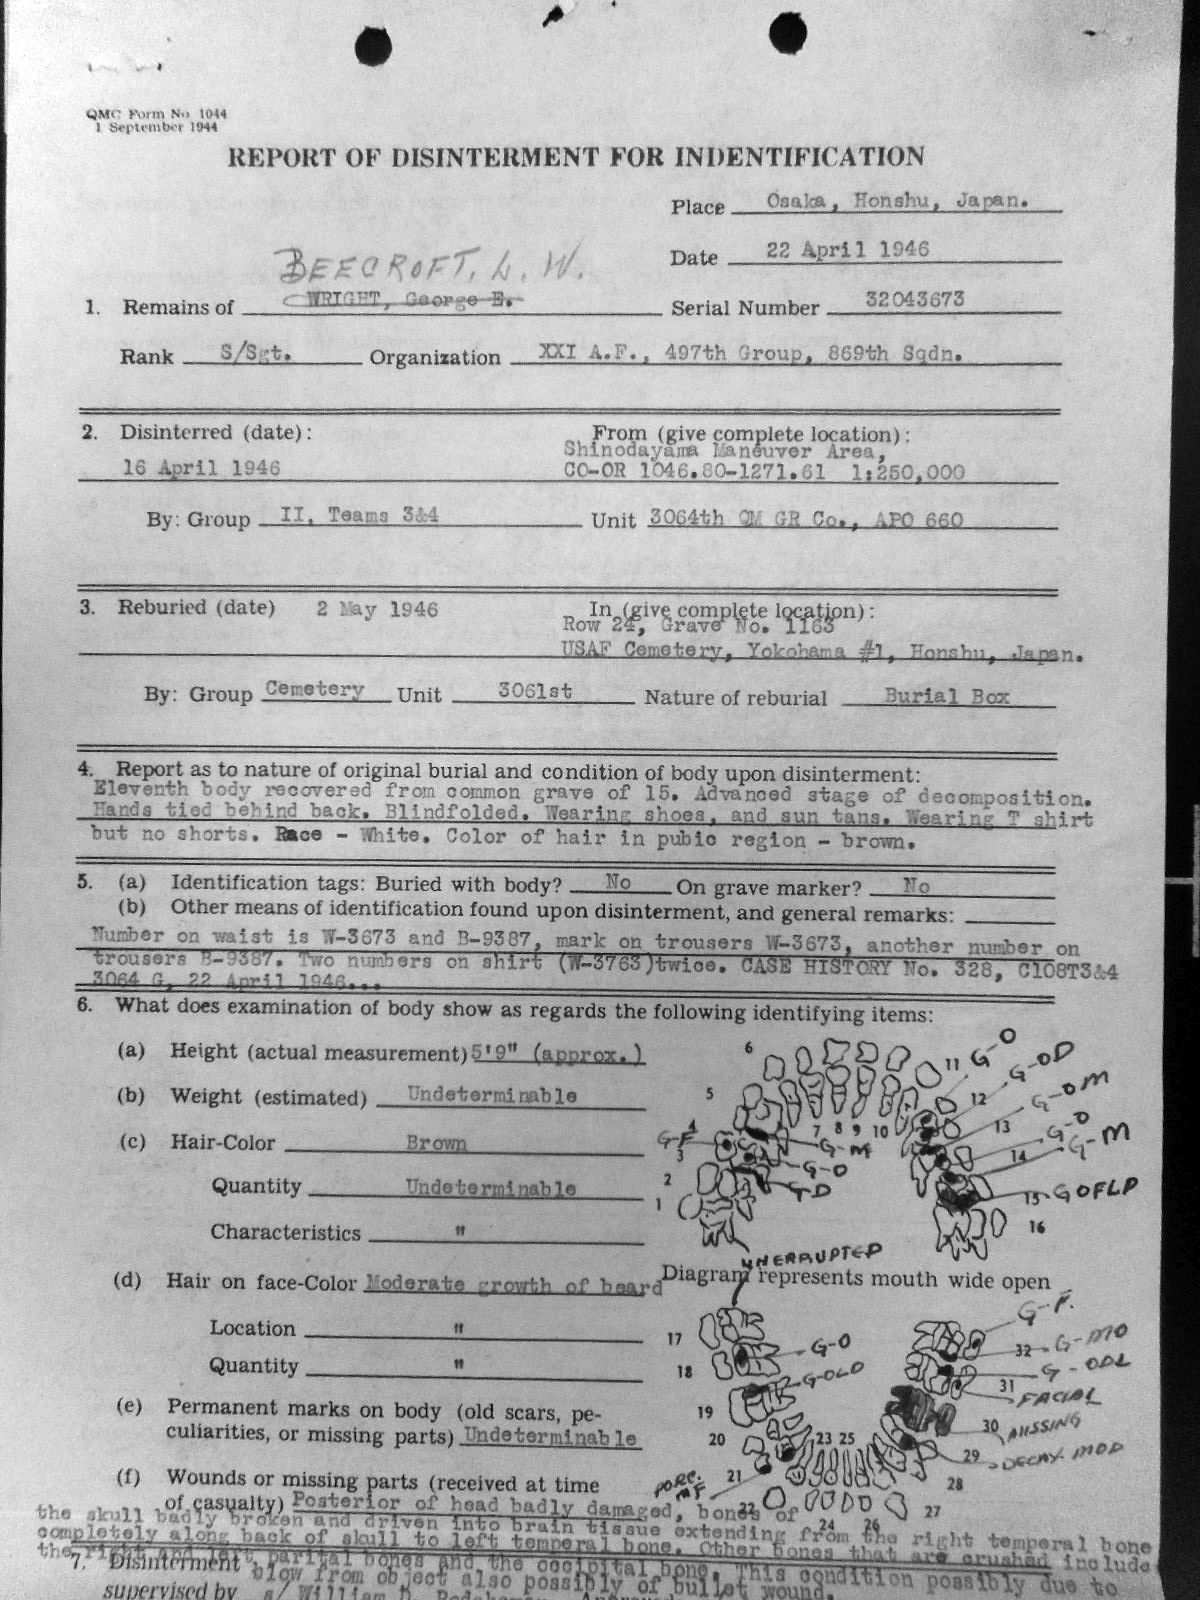 QMC Form No. 1044
1 September 1944
REPORT OF DISINTERMENT FOR INDENTIFICATION
Place Osaka, Honshu, Japan.
Date 22 April 1946
BEECROFT, L. W.
1. Remains of WRIGHT, George E. Serial Number 32043673
Rank S/Sgt. Organization XXI A.F., 497th Group, 869th Sqdn.
2. Disinterred (date): From (give complete location):
Shinodayama Maneuver Area,
16 April 1946 CO-OR 1046.80-1271.61 1:250,000
By: Group II, Teams 3&4 Unit 3064th QM GR Co., APO 660
3. Reburied (date) 2 May 1946 In (give complete location):
Row 24, Grave No. 1163
USAF Cemetery, Yokohama #1, Honshu, Japan.
By: Group Cemetery Unit 3061st Nature of reburial Burial Box
4. Report as to nature of original burial and condition of body upon disinterment:
Eleventh body recovered from common grave of 15. Advanced stage of decomposition.
Hands tied behind back. Blindfolded. Wearing shoes, and sun tans. Wearing T shirt
but no shorts. Race - White. Color of hair in pubic region - brown.
5. (a) Identification tags: Buried with body? No On grave marker? No
(b) Other means of identification found upon disinterment, and general remarks:
Number on waist is W-3673 and B-9387, mark on trousers W-3673, another number on
trousers B-9387. Two numbers on shirt (W-3763)twice. CASE HISTORY No. 328, C108T3&4
3064 G, 22 April 1946...
6. What does examination of body show as regards the following identifying items:
(a) Height (actual measurement) 5'9" (approx.)
(b) Weight (estimated) Undeterminable
(c) Hair-Color Brown
Quantity Undeterminable
Characteristics "
(d) Hair on face-Color Moderate growth of beard
Location "
Quantity "
(e) Permanent marks on body (old scars, pe-
culiarities, or missing parts) Undeterminable
(f) Wounds or missing parts (received at time
of casualty) Posterior of head badly damaged, bones of
the skull badly broken and driven into brain tissue extending from the right temporal bone
completely along back of skull to left temporal bone. Other bones that are crushed include
the right and left parital bones and the occipital bone. This condition possibly due to
blow from object also possibly of bullet wound.
7. Disinterment
supervised by s/ William
6 11 G-O
5 12 G-OD
4 7 8 9 10 13 G-OM
G-F G-M G-O
3 G-O 14 G-M
2 G-D 15 GOFLP
1 16
UNERRUPTED
Diagram represents mouth wide open
17 G-F.
18 G-O 32 G-MO
G-OLD 31 G-ODL
19 FACIAL
20 23 25 30 MISSING
21 29 DECAY. MOD
PORC. 28
22 27
24 26